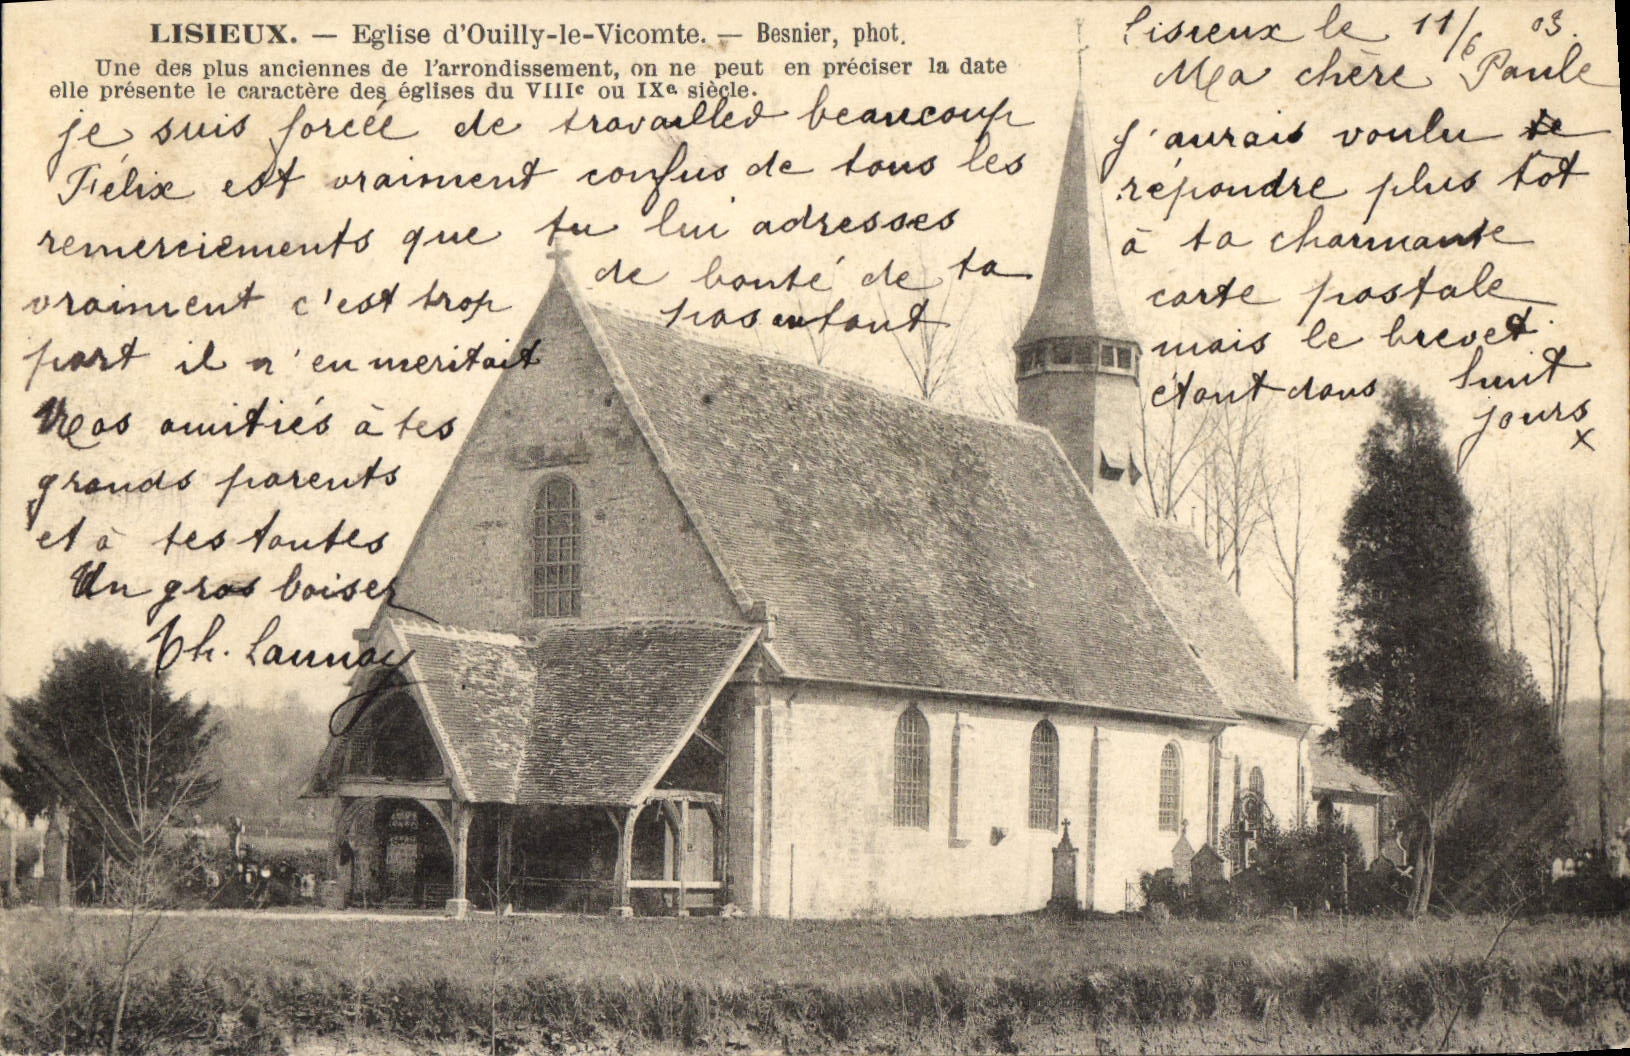 LISIEUX. — Eglise d'Ouilly-le-Vicomte. — Besnier, phot.
Une des plus anciennes de l'arrondissement, on ne peut en préciser la date
elle présente le caractère des églises du VIIIe ou IXe siècle.
Lisieux le 11/6 03.
Ma chère Paule
J'aurais voulu te
répondre plus tôt
à ta charmante
carte postale
mais le brevet
étant dans huit
jours
x
je suis forcée de travailler beaucoup
Félix est vraiment confus de tous les
remerciements que tu lui adresses
vraiment c'est trop de bonté de ta
part il n'en meritait pas autant
Mes amitiés à tes
grands parents
et à tes tantes
Un gros baiser
Th. Launay